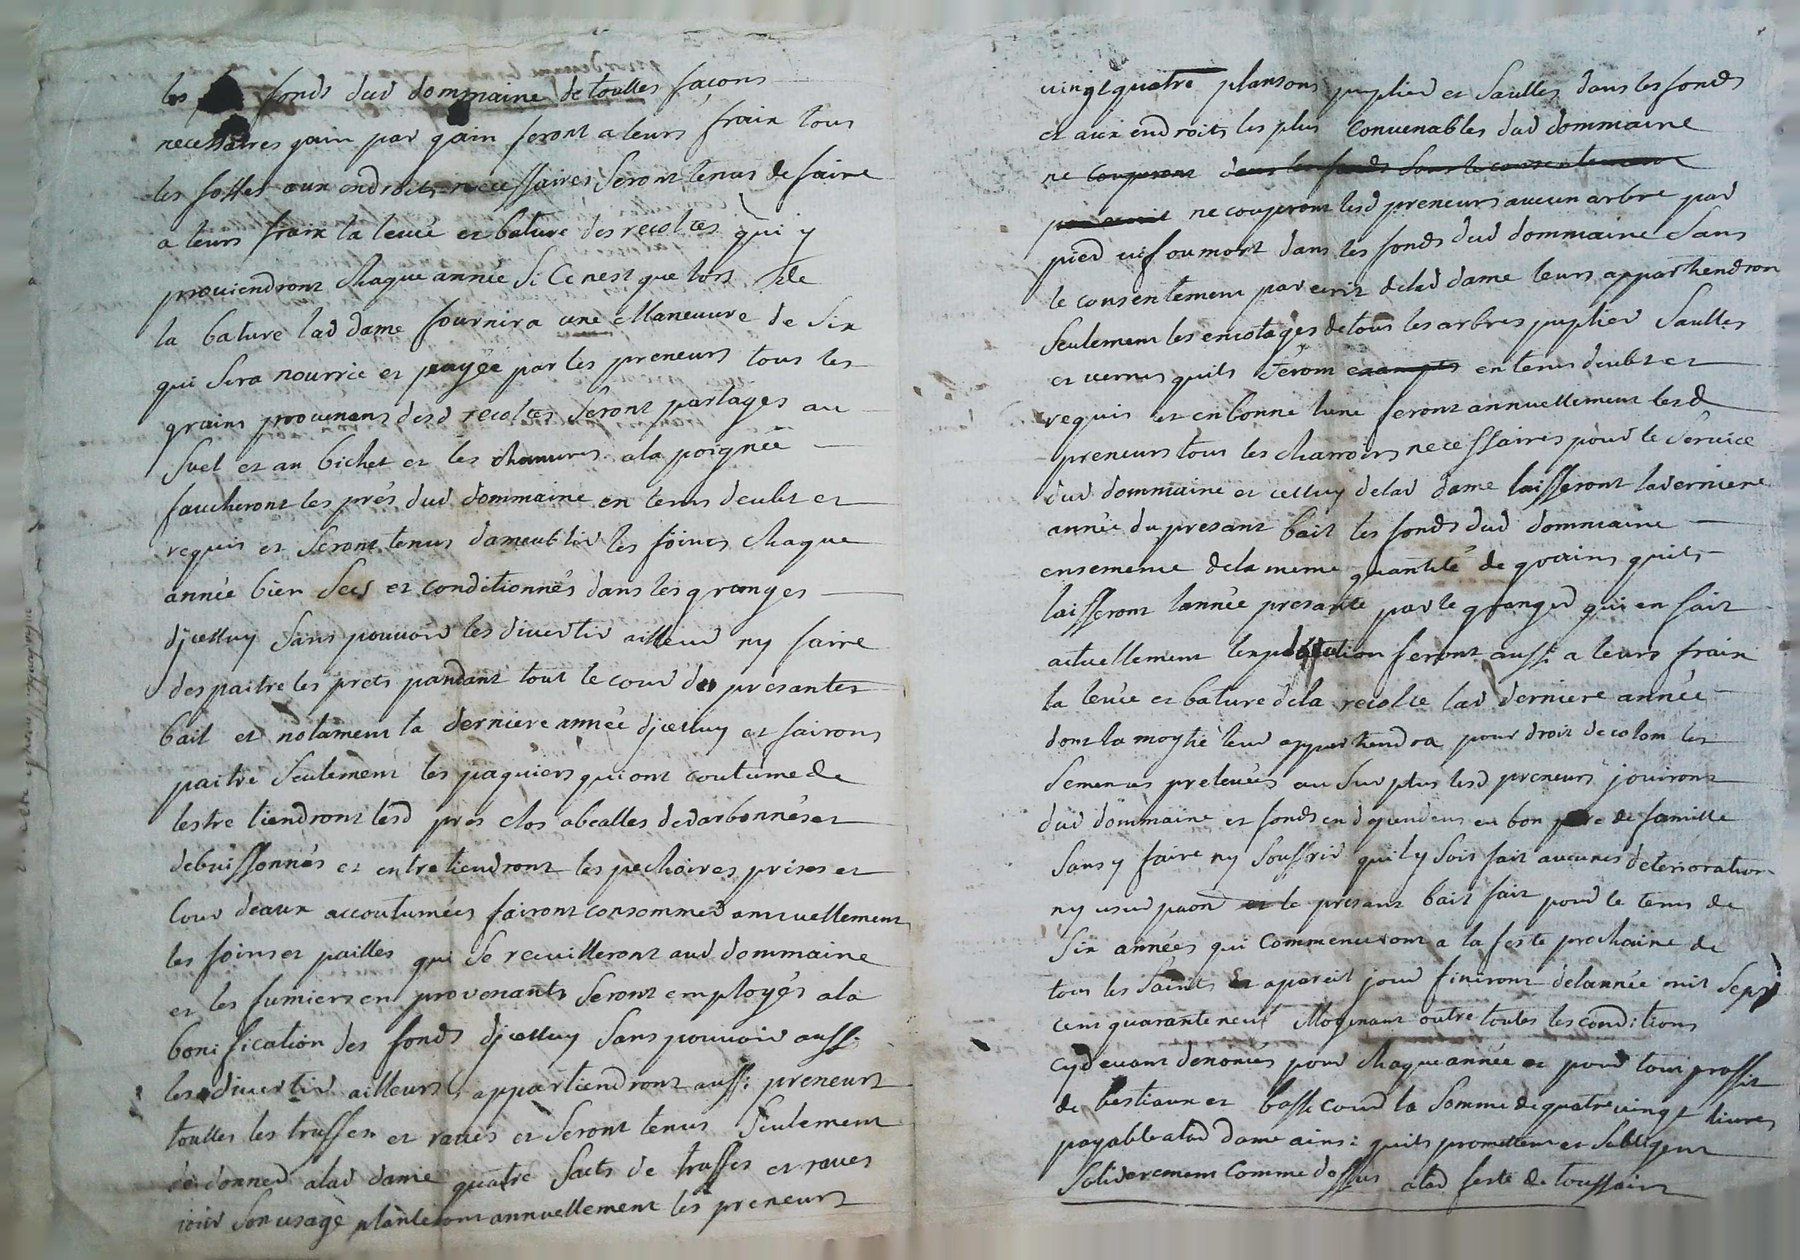 les fonds dud dommaine de touttes façons
necessaires gain par gain feront a leurs fraix tous
les fosses aux endroits necessaires seront tenus de faire
a leurs fraix la levée et bature des recoltes qui y
proviendront chaque année si ce nest que lors de
la bature lad dame fournira une maneuvre de six
qui sera nourrie et payée par les preneurs tous les
grains provenans desd recoltes seront partages au
suel et au bichet et les chanvres a la poignée
faucheront les prés dud dommaine en tems deubt et
requis et seront tenus dameublir les foins chaque
année bien secs et conditionnés dans les granges
djcelluy sans pouvoir les divertir ailleur ny faire
despaitre les prets pandant tout le cour du presantes
bail et notament la derniere année djcelluy et fairons
paitre seulement les paquiers qui ont coutume de
lestre tiendront lesd prés clos abealles dedarbonnés et
debuissonnés et entretiendront les pechoires prises et
cour deaux accoutumées fairont consommer annuellement
les foins et pailles qui se reuilleront aud dommaine
et les fumiers en provenants seront employés a la
bonification des fonds djcelluy sans pouvoir aussi
les divertir ailleurs, appartiendront aussi preneurs
touttes les truffes et raves et seront tenus seulement
de donner a lad dame quatre sacts de truffes et raves
pour son usage planteront annuellement les preneurs
vingt quatre plansons puplier et saulles dans les fonds
et aux endroits les plus convenables dud dommaine
ne couperont dans les fonds sans le consentement
par ecrit ne couperont lesd preneurs aucun arbre par
pied vif ou mort dans les fonds dud dommaine sans
le consentement par ecrit delad dame leurs appartiendront
seulement les emotages de tous les arbres puplier saulles
et vernes quils seront en tems deubt et
requis et en bonne lune feront annuellement lesd
preneurs tous les charrois necessaires pour le service
dud dommaine et celluy delad dame laisseront la derniere
année du presant bail les fonds dud dommaine
ensemence de la meme quantité de grains quils
laisseront lannée presante par le granger qui en fait
actuellement lexploitation feront aussi a leurs fraix
la levée et bature dela recolte lad derniere année
dont la moytié leur appartiendra pour droit de colon les
semences prelevées au surplus lesd preneurs jouiront
dud dommaine et fonds en dependens en bon pere de famille
sans y faire ny souffrir quil y soit fait aucunes deterioration
ny usurpaon et le presant bail fait pour le tems de
six années qui commenceront a la feste prochaine de
tous les saints et a pareil jour finiront de lannée mil sept
cent quarante neuf moyenant outre touttes les conditions
cydevant denoncés pour chaque année et pour tout proffit
de bestiaux et basse cour la somme de quatre vingt livres
payable a lad dame ainsi quils promettent et sobligent
solideremen comme dessus a lad feste de toussaint